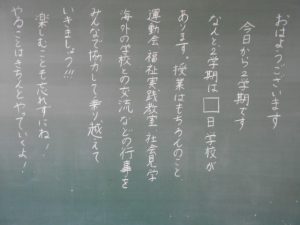 おはようございます
今日から2学期です
なんと2学期は□日学校が
あります。授業はもちろんのこと
運動会 福祉実践教室 社会見学
海外の学校との交流などの行事を
みんなで協力して乗り越えて
いきましょう!!!
楽しむことも忘れずにね!
やることはきちんとやっていくよ!